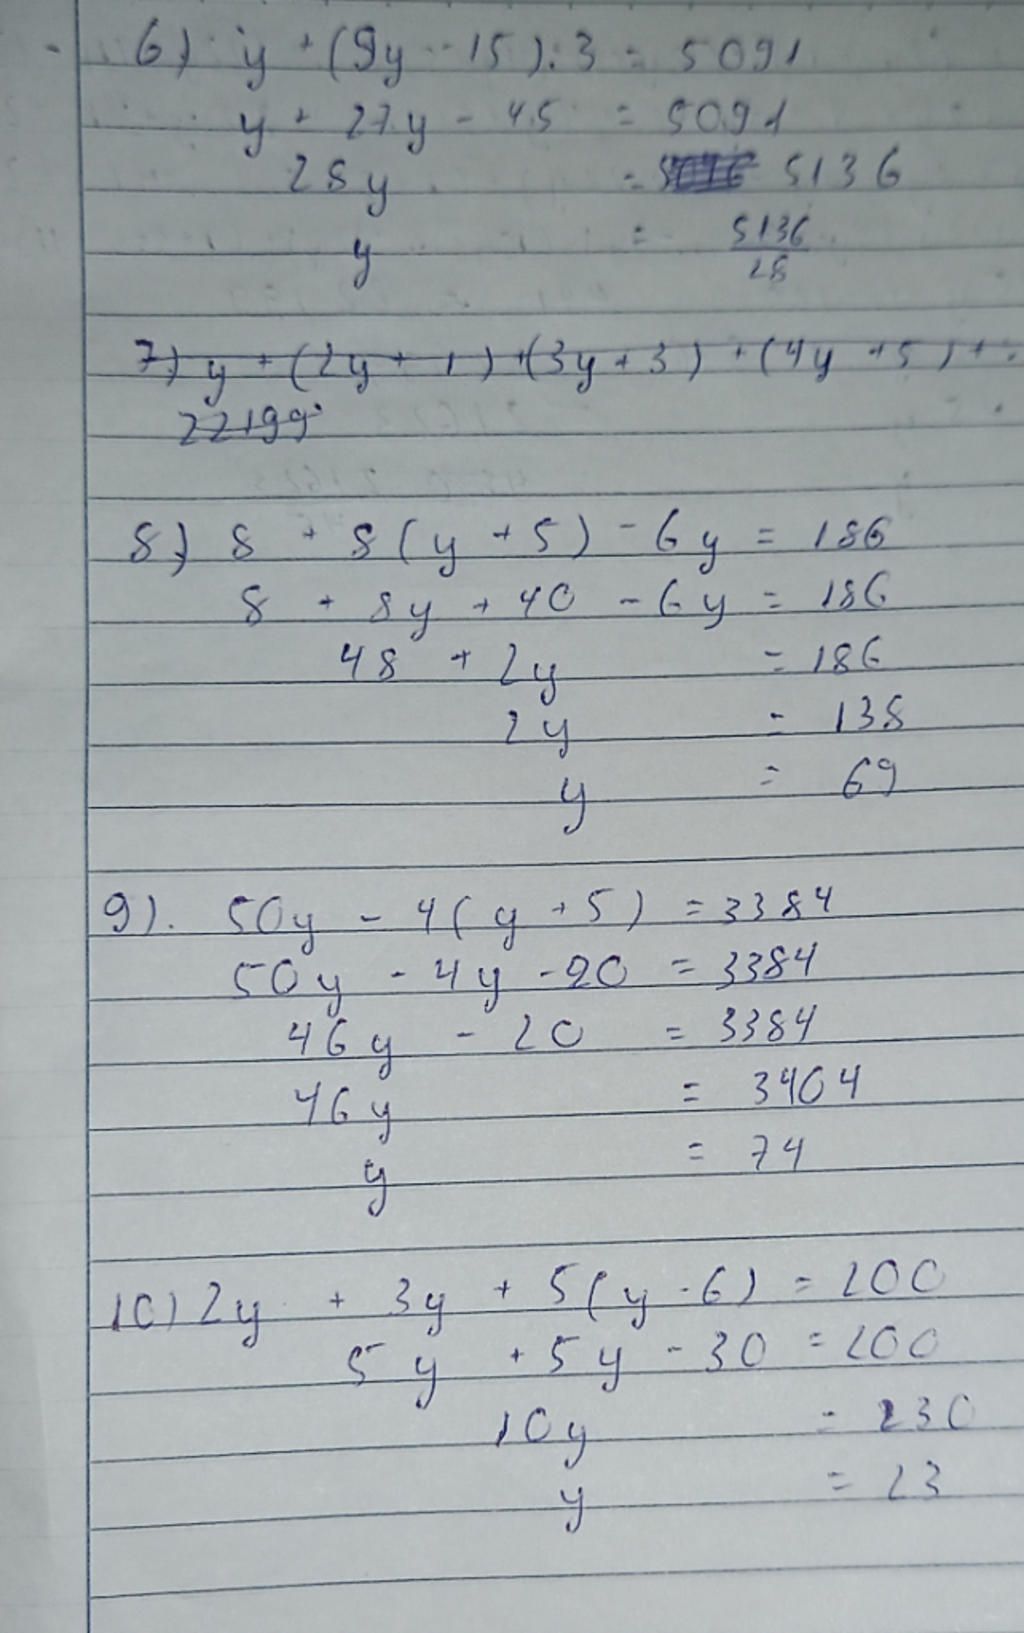 6) y + (9y - 15) : 3 = 5091
y + 27y - 45 = 5091
28y = 5136
y = 5136/28
7) y + (2y + 1) + (3y + 3) + (4y + 5) + .
22199
8) 8 + 8(y + 5) - 6y = 186
8 + 8y + 40 - 6y = 186
48 + 2y = 186
2y = 138
y = 69
9). 50y - 4(y + 5) = 3384
50y - 4y - 20 = 3384
46y - 20 = 3384
46y = 3404
y = 74
10) 2y + 3y + 5(y - 6) = 200
5y + 5y - 30 = 200
10y = 230
y = 23